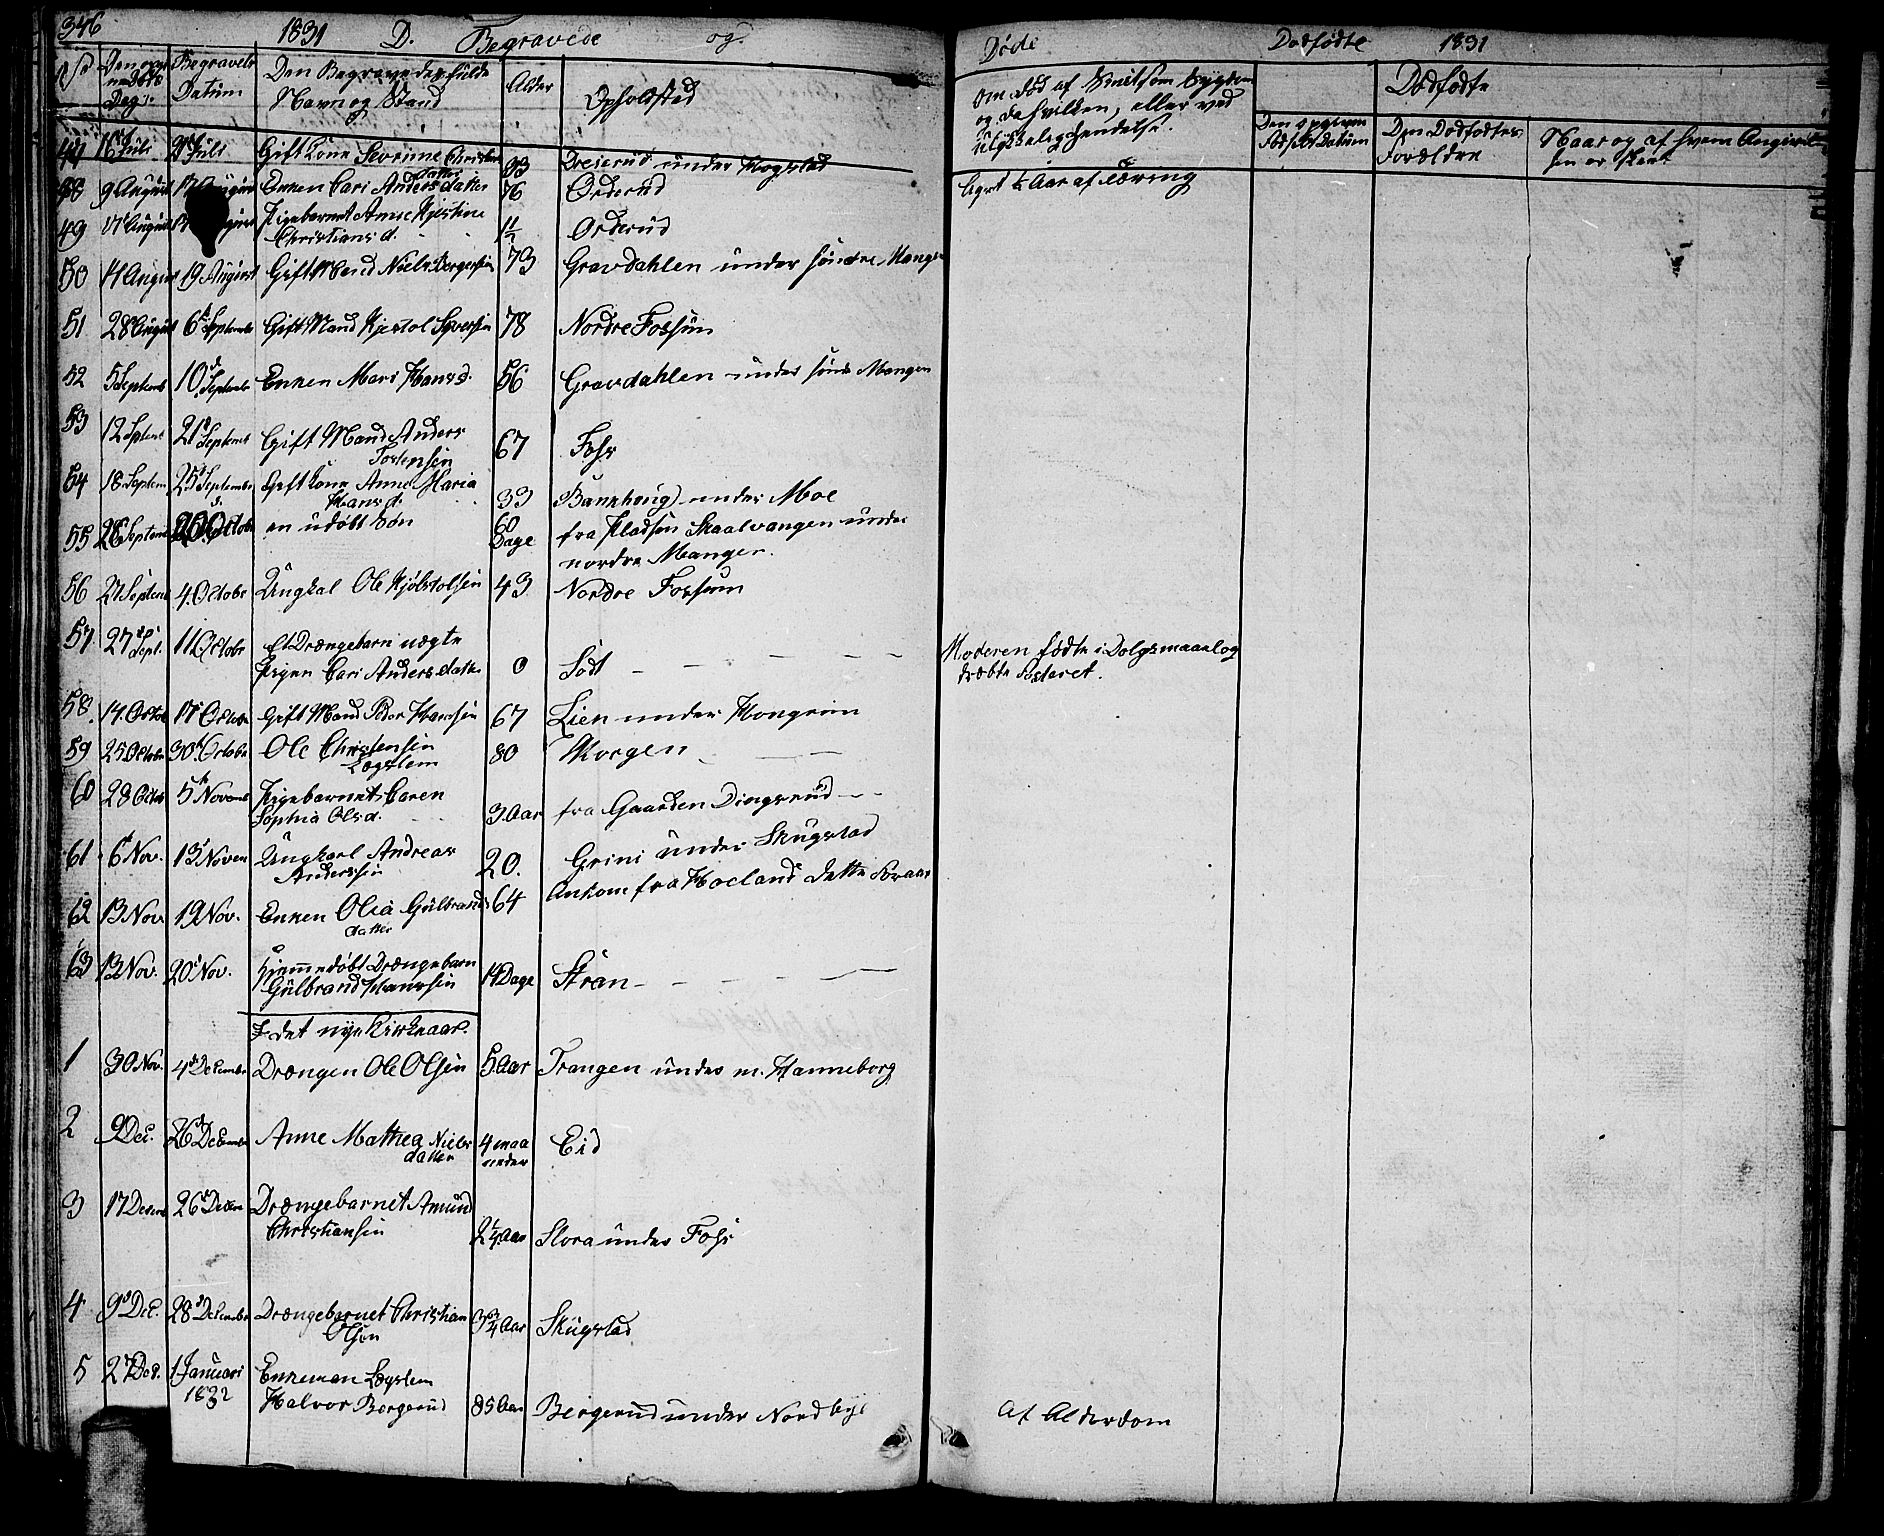 346 1831 D. Begravede og Døde Dødfødte 1831
Begravels Datum
Den Begravedes fulde Navn og Stand
Alder
Opholdsted
Dødfødte
Den Dødfødtes Forældre
Naar og af hvem
16 Juli Gift Kone Sevrine Christensdatter 33 under Hogstad
9 August Enken Cari Andersdatter 76 Orderud
49 Pigebarnet Anne Kjestine Christians d. 1½ Orderud
50 14 August 19 August Gift Mand Niels Borgersen 73 Gravdahlen under søndre Mangen
51 28 August 6 Septembr Gift Mand Kjøstol Syversen 78 Nordre Fossum
52 5 Septemb 10 Septembr Enken Mari Hans d. 56 Gravdahlen under sønde Mangen
53 12 Septemb 21 Septemb Gift Mand Anders Tostensen 67 Foss
54 18 Septem 25 Septembr Gift Kone Anne Maria Hans d. 33 Bankhoug under Moe
55 26 Septemb Octobr en udøbt Søn 60 Dage fra Pladsen Skaalvangen under nordre Mangen.
56 27 Septemb 4 Octobr Ungkal Ole Kjølstolsen 43 Nordre Fossum
57 27 Sept. 11 Octobr Et Drængebarn uægte Pigen Cari Andersdatter 0 Moderen fødte i Dolgsmaal og dræbte Fosteret.
58. 14. Octob 17 Octobr Gift Mand Peder Hansen 67 Lien under Hongrim
59 25 Octobr 30 Octobr Ole Christensen Lægslem 80 Morgen
60 28 Octob 5 Novemb Pigebarnet Caren Sophia Ols d. 3. Aar fra Gaarden Dingsrud
61 6 Nov. 13 Novem Ungkarl Andreas Anderssen 20. Grini under Skugstad
62 13 Nov. 19 Nov. Enken Olia Gulbrandsdatter 64 Ankom fra Høeland dette Foraar
63 13 Nov. 20 Nov. Hjemmedøbt Drængebarn Gulbrand Hanssen 14 Dage Strøm
I det nye Kirkeaar.
1 30 Nov. 4 Decembr Drængen Ole Olsen 5 Aar Trangen under m. Hanneborg
2 9 Dec. 26 Decembr Anne Mathea Nielsdatter 4 maaneder Eid
3 17 Decemb 26 Decem Drængebarnet Amund Christiansen 2¼ Aar Slora under Foss
4 9 Dec. 28 Decembr Drængebarnet Christian Olsen 3¾ Aar Skugstad
5 27 Dec. 1 Januari 1832 Enkeman Lægslem Halvor Bergerud 85 Aar Bergerud under Nordbye Af Alderdom